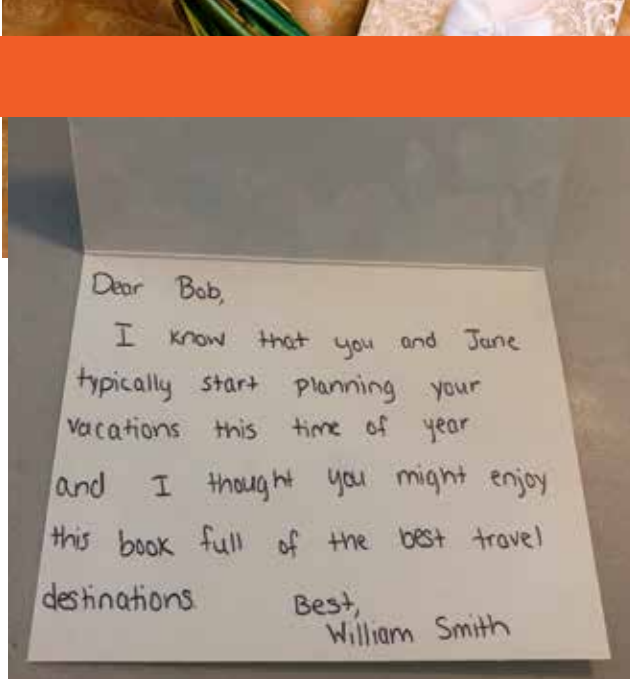 Dear Bob,
I know that you and Jane
typically start planning your
vacations this time of year
and I thought you might enjoy
this book full of the best travel
destinations.
Best,
William Smith